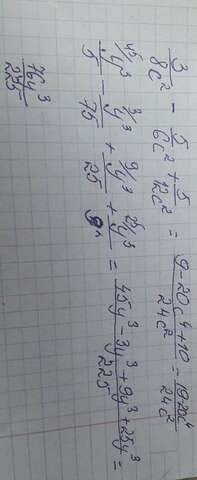 3/8c² - 5/6c² + 5/12c² = (9-20c⁴+10)/24c² = (19-20c⁴)/24c²
⁴⁵/y³/5 - ³/y³/75 + ⁹/y³/25 + ²⁵/y³/9 = (45y³-3y³+9y³+25y³)/225 =
76y³/225